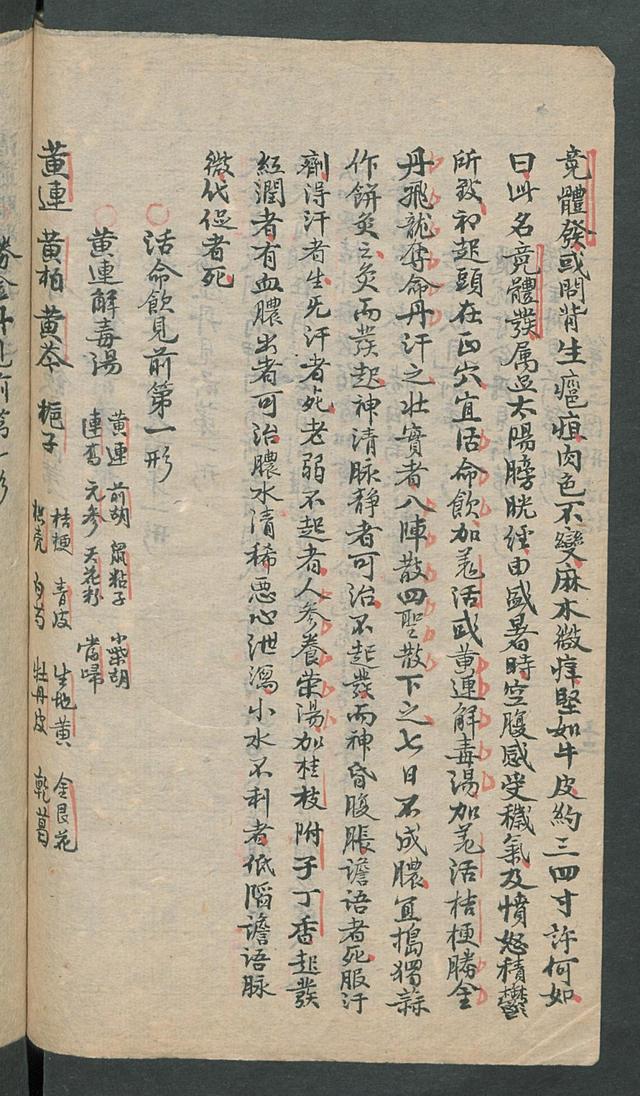 竟體發或問背生瘟疽肉色不變麻木微痒堅如牛皮約三四寸許何如
曰此名竟體發属足太陽膀胱經由盛暑時空腹感受穢氣及憤怒積鬱
所致初起頭在正穴宜活命飲加羌活或黄連解毒湯加羌活桔梗勝金
丹飛龍奪命丹汗之壮實者八陣散四聖散下之七日不成膿宜搗獨蒜
作餅灸之灸而發起神清脉静者可治不起發而神昏腹脹譫語者死服汗
劑得汗者生无汗者死老弱不起者人参養荣湯加桂枝附子丁香起發
紅潤者有血膿出者可治膿水清稀惡心泄瀉小水不利者低陷譫语脉
微代促者死
活命飲見前第一形
黄連解毒湯
黄連 前胡 鼠粘子 小柴胡
連喬 元参 天花粉 當歸
黄連 黄柏 黄芩 梔子
桔梗 青皮 生地黄 金艮花
枳壳 白芍 牡丹皮 乾葛
勝金丹見前第一形